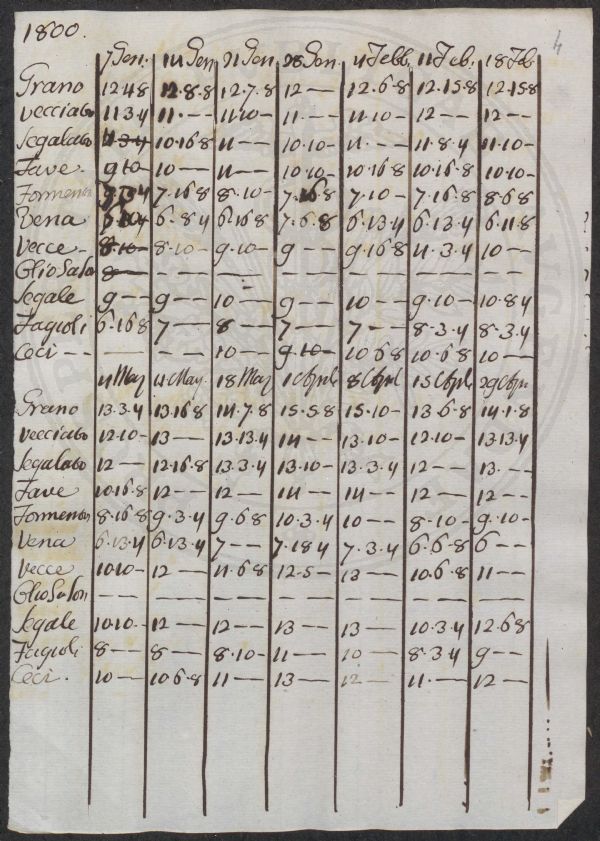 1800.
4
7 Gen. 14 Gen 21 Gen 28 Gen. 4 Febb. 11 Feb. 18 Feb
Grano 12.4.8 12.8.8 12.7.8 12 — 12.6.8 12.15.8 12.15.8
Vecciato 11.3.4 11. — 11.10 — 11. — 11.10 — 12 — 12 —
Segalato 11.3.4 10.16.8 11 — 10.10 — 11. — 11.8.4 11.10 —
Fave. 9.10 — 10 — 11 — 10.10 — 10.16.8 10.16.8 10.10 —
Formenton 7.16.8 8.10 — 7.16.8 7.10 — 7.16.8 8.6.8
Vena 6.10 6.8.4 6.16.8 7.6.8 6.13.4 6.13.4 6.11.8
Vecce — 8.10 — 8.10 — 9.10 — 9 — 9.16.8 11.3.4 10 —
Glio Saton 8 — — — — — — — — — — — — —
Segale 9 — 9 — 10 — 9 — 10 — 9.10 — 10.8.4
Fagioli 6.16.8 7 — 8 — 7 — 7 — 8.3.4 8.3.4
Ceci — — — — — — 10 — 9.10 — 10.6.8 10.6.8 10 —
4 Marz 11 Marz 18 Marz 1 Aprile 8 April 15 Aprile 29 Apri
Grano 13.3.4 13.16.8 14.7.8 15.5.8 15.10 — 13.6.8 14.1.8
Vecciato 12.10 — 13 — 13.13.4 14 — 13.10 — 12.10 — 13.13.4
Segalato 12 — 12.16.8 13.3.4 13.10 — 13.3.4 12 — 13. —
Fave 10.16.8 12 — 12 — 14 — 14 — 12 — 12 —
Formenton 8.16.8 9.3.4 9.6.8 10.3.4 10 — 8.10 — 9.10 —
Vena 6.13.4 6.13.4 7 — 7.18.4 7.3.4 6.6.8 6 —
Vecce 10.10 — 12 — 11.6.8 12.5 — 12 — 10.6.8 11 —
Glio Saton — — — — — — — — — — — — — —
Segale 10.10 — 12 — 12 — 13 — 13 — 10.3.4 12.6.8
Fagioli 8 — 8 — 8.10 — 11 — 10 — 8.3.4 9 —
Ceci. 10 — 10.6.8 11 — 13 — 12 — 11. — 12 —